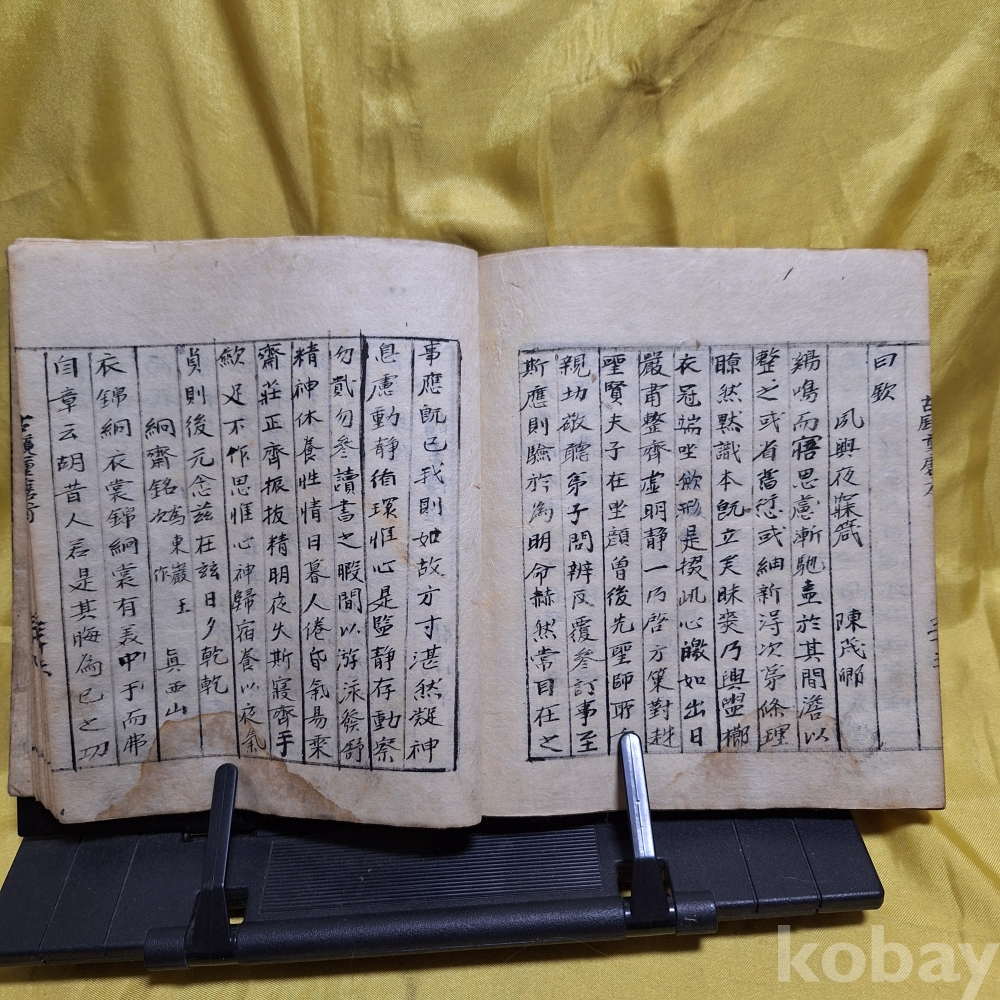 曰欽
夙興夜寐箴 陳茂卿
鷄鳴而寤思慮漸馳盍於其間澹以
整之或省舊愆或紬新淂次苐條理
瞭然默識本旣立矣昧爽乃興盥櫛
衣冠端坐斂形是掇此心皦如出日
嚴肅整齊虛明静一乃啓方策對越
聖賢夫子在坐顔曾後先聖師所
親切敬聽苐子問辨反覆參訂事至
斯應則驗於為明命赫然常目在之
事應旣已我則如故方寸湛然凝神
息慮動靜循環惟心是監静存動察
勿貳勿參讀書之暇間以游泳發舒
精神休養性情日暮人倦昏氣易乘
齋莊正齊振拔精明夜久斯寢齊手
斂足不作思惟心神歸宿養以夜氣
貞則後元念茲在玆日夕乾乾
絅齋銘次為東巖王作 眞西山
衣錦絅衣裳錦絅裳有美中于而弗
自章云胡昔人若是其晦為已之功
kobay